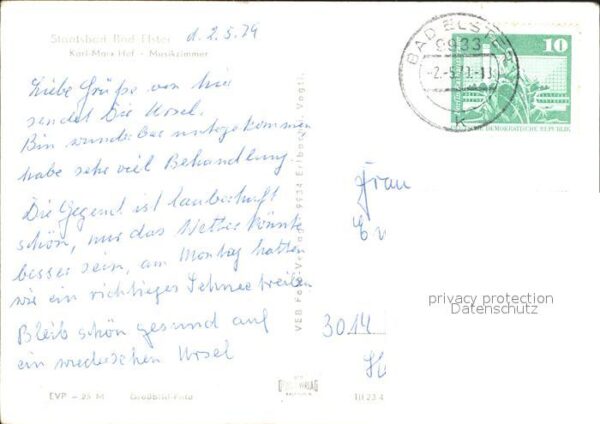 Staatsbad Bad Elster
Karl-Marx Hof - Musikzimmer
d. 2.5.79
Liebe Grüße von hier
sendet Dir Ursel.
Bin wunderbar untergekommen
habe sehr viel Behandlung.
Die Gegend ist zauberhaft
schön, nur das Wetter könnte
besser sein, am Montag hatten
wir ein richtiges Schneetreiben
Bleib schön gesund auf
ein wiedersehen Ursel
EVP - 25 M
VEB Foto-Verlag 9934 Erlbach i. Vogtl.
BAD ELSTER
9933
-2.-5.79.-13
k
10
DEUTSCHE DEMOKRATISCHE REPUBLIK
Frau
3014
privacy protection
Datenschutz
III 23 4